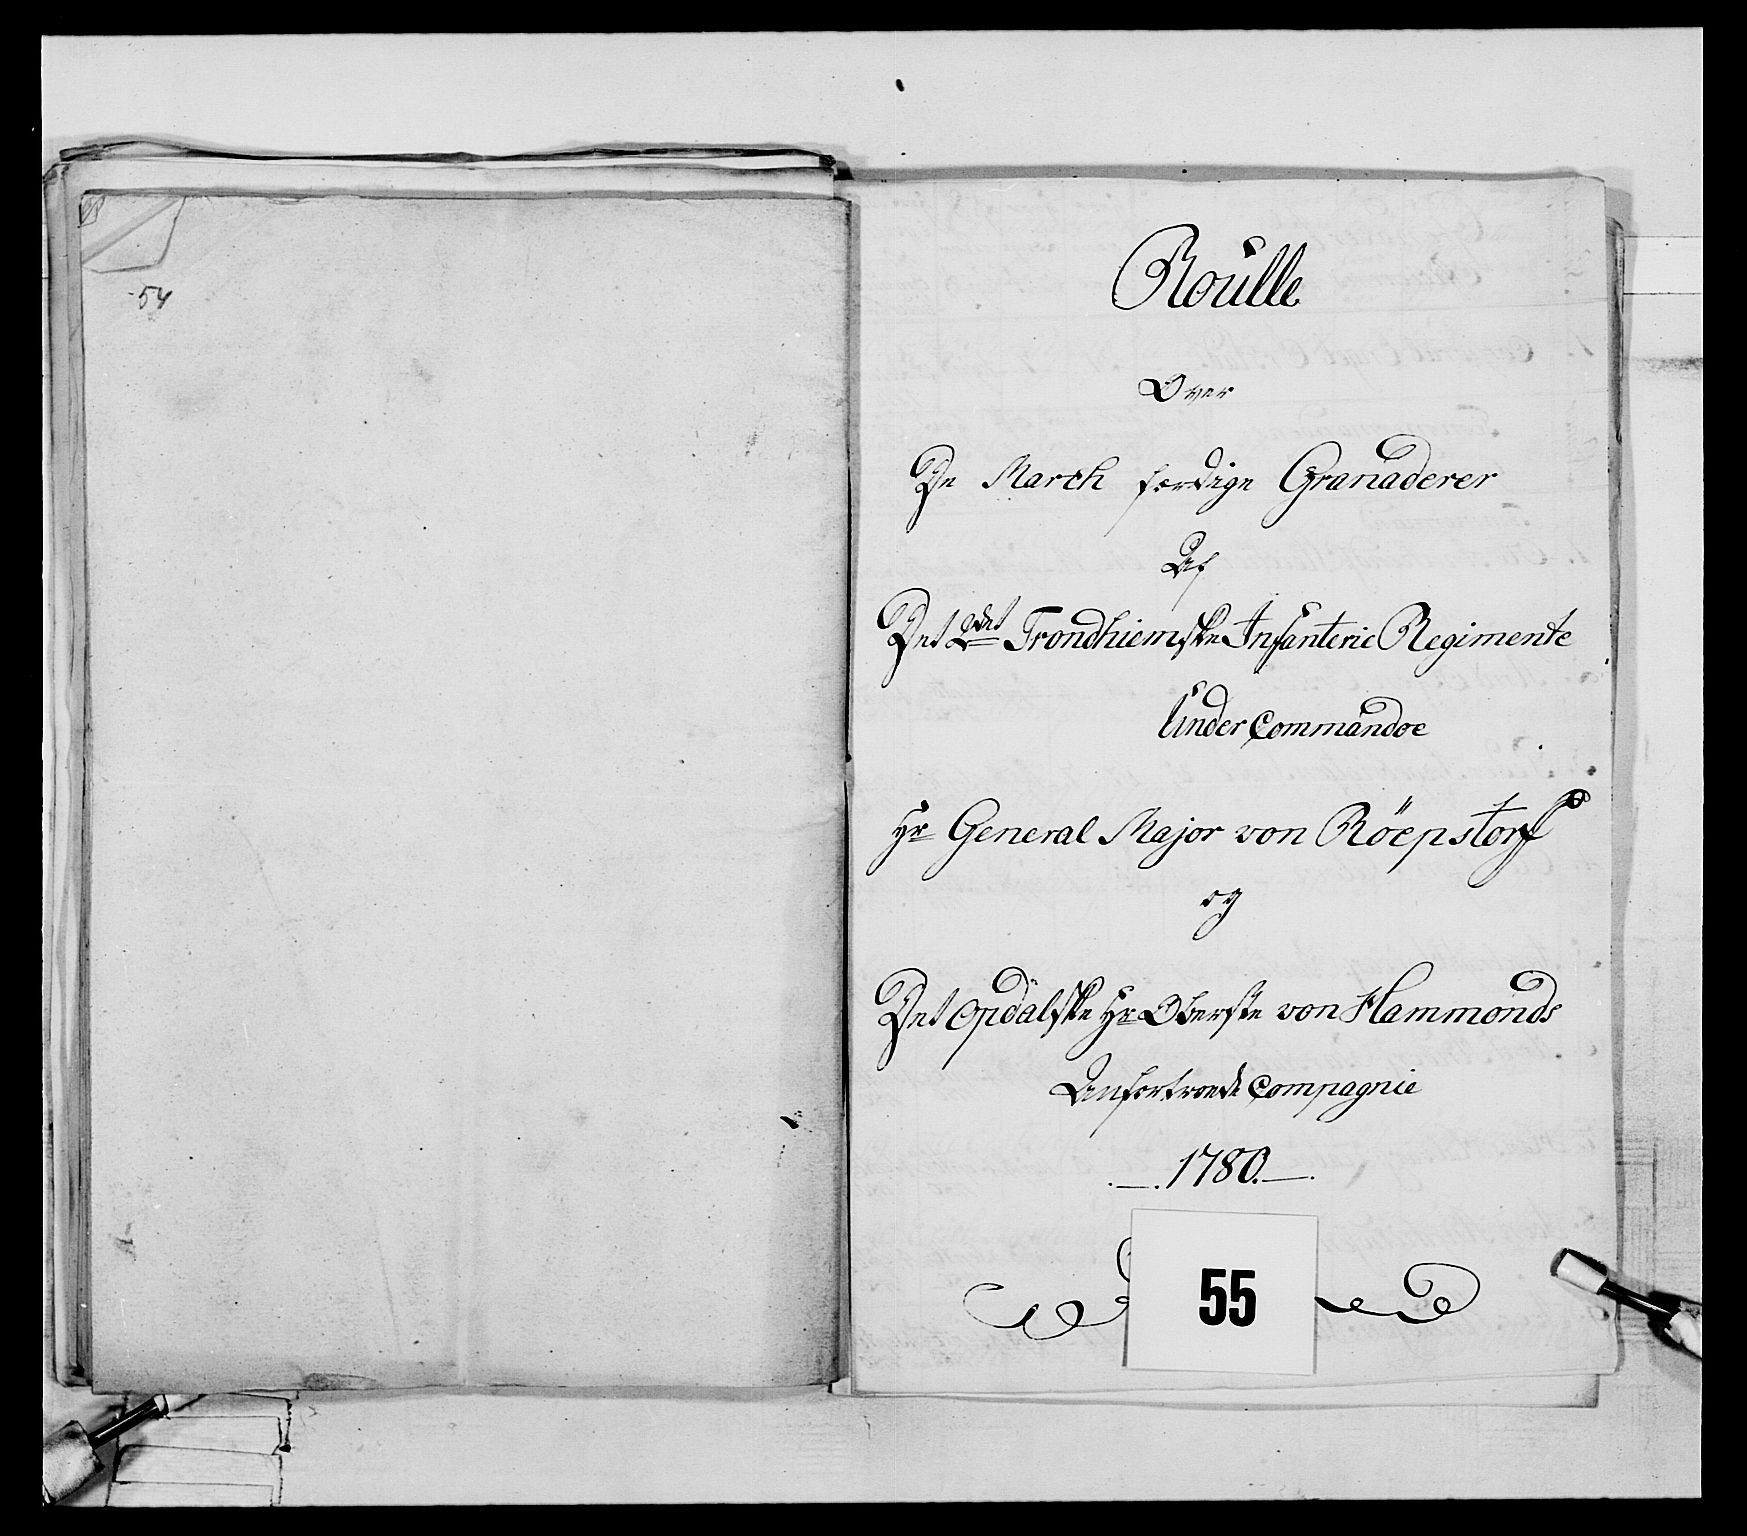 54
Roulle
Over
De March færdige Granaderer
Af
Det 2det Trondhiemske Infanterie Regimente
Under Commandoe
Hr General Major von Röepstorff
og
Det Opdalske Hr Oberste von Hammonds
Anfortroede Compagnie
1780.
55